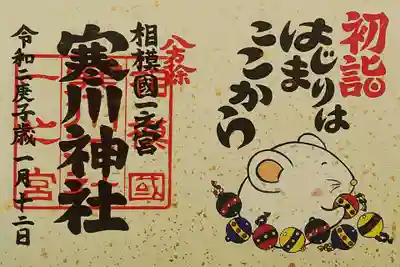 初詣
はじりは
はま
ここから
八方除
相模國一之宮
寒川神社
令和二庚子歳 一月十二日
相模國
一之宮